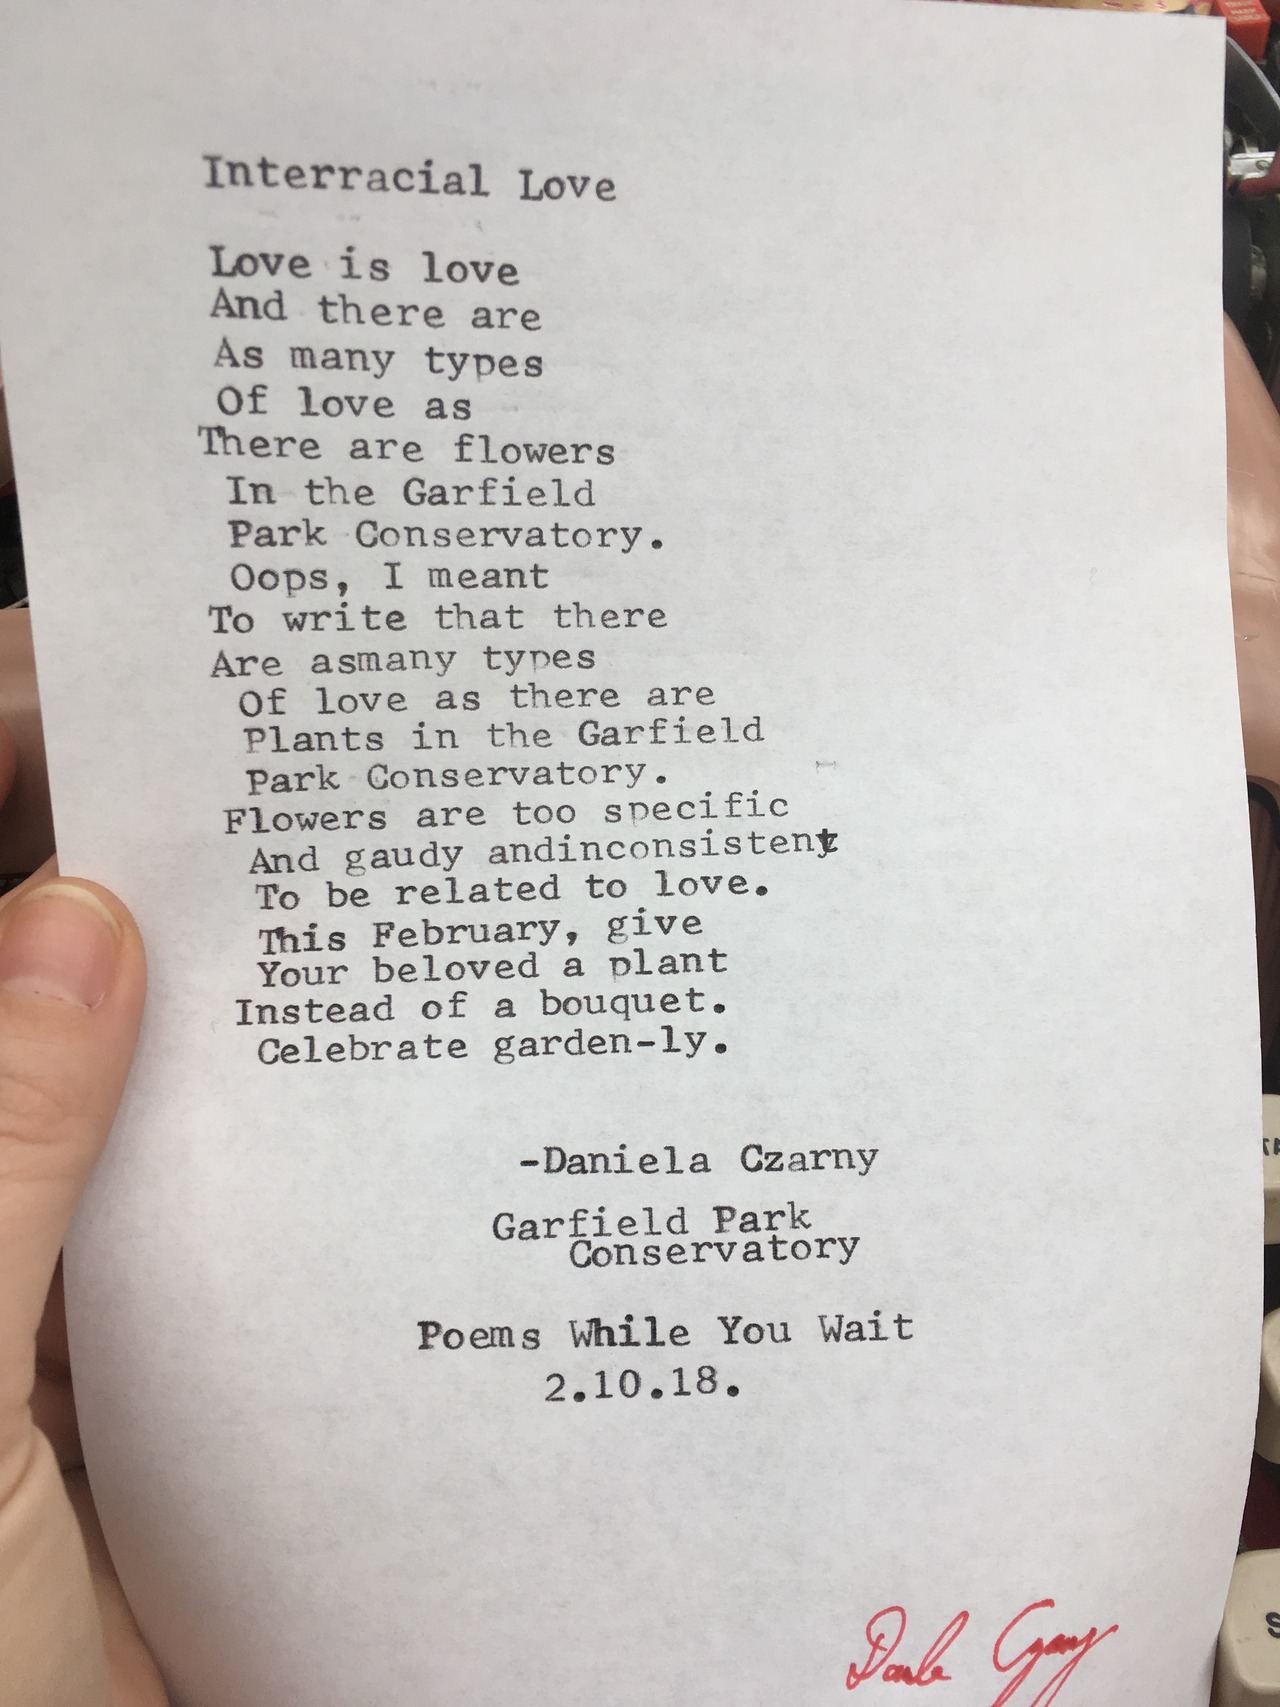 Interracial Love
Love is love
And there are
As many types
Of love as
There are flowers
In the Garfield
Park Conservatory.
Oops, I meant
To write that there
Are asmany types
Of love as there are
Plants in the Garfield
Park Conservatory.
Flowers are too specific
And gaudy andinconsistent
To be related to love.
This February, give
Your beloved a plant
Instead of a bouquet.
Celebrate garden-ly.
-Daniela Czarny
Garfield Park
Conservatory
Poems While You Wait
2.10.18.